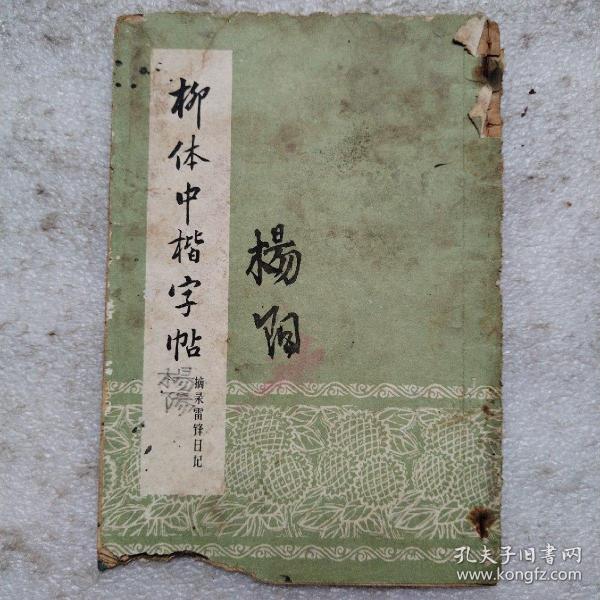 柳体中楷字帖
摘录雷锋日记
楊阳
楊陽
孔夫子旧书网
www.kongfz.com